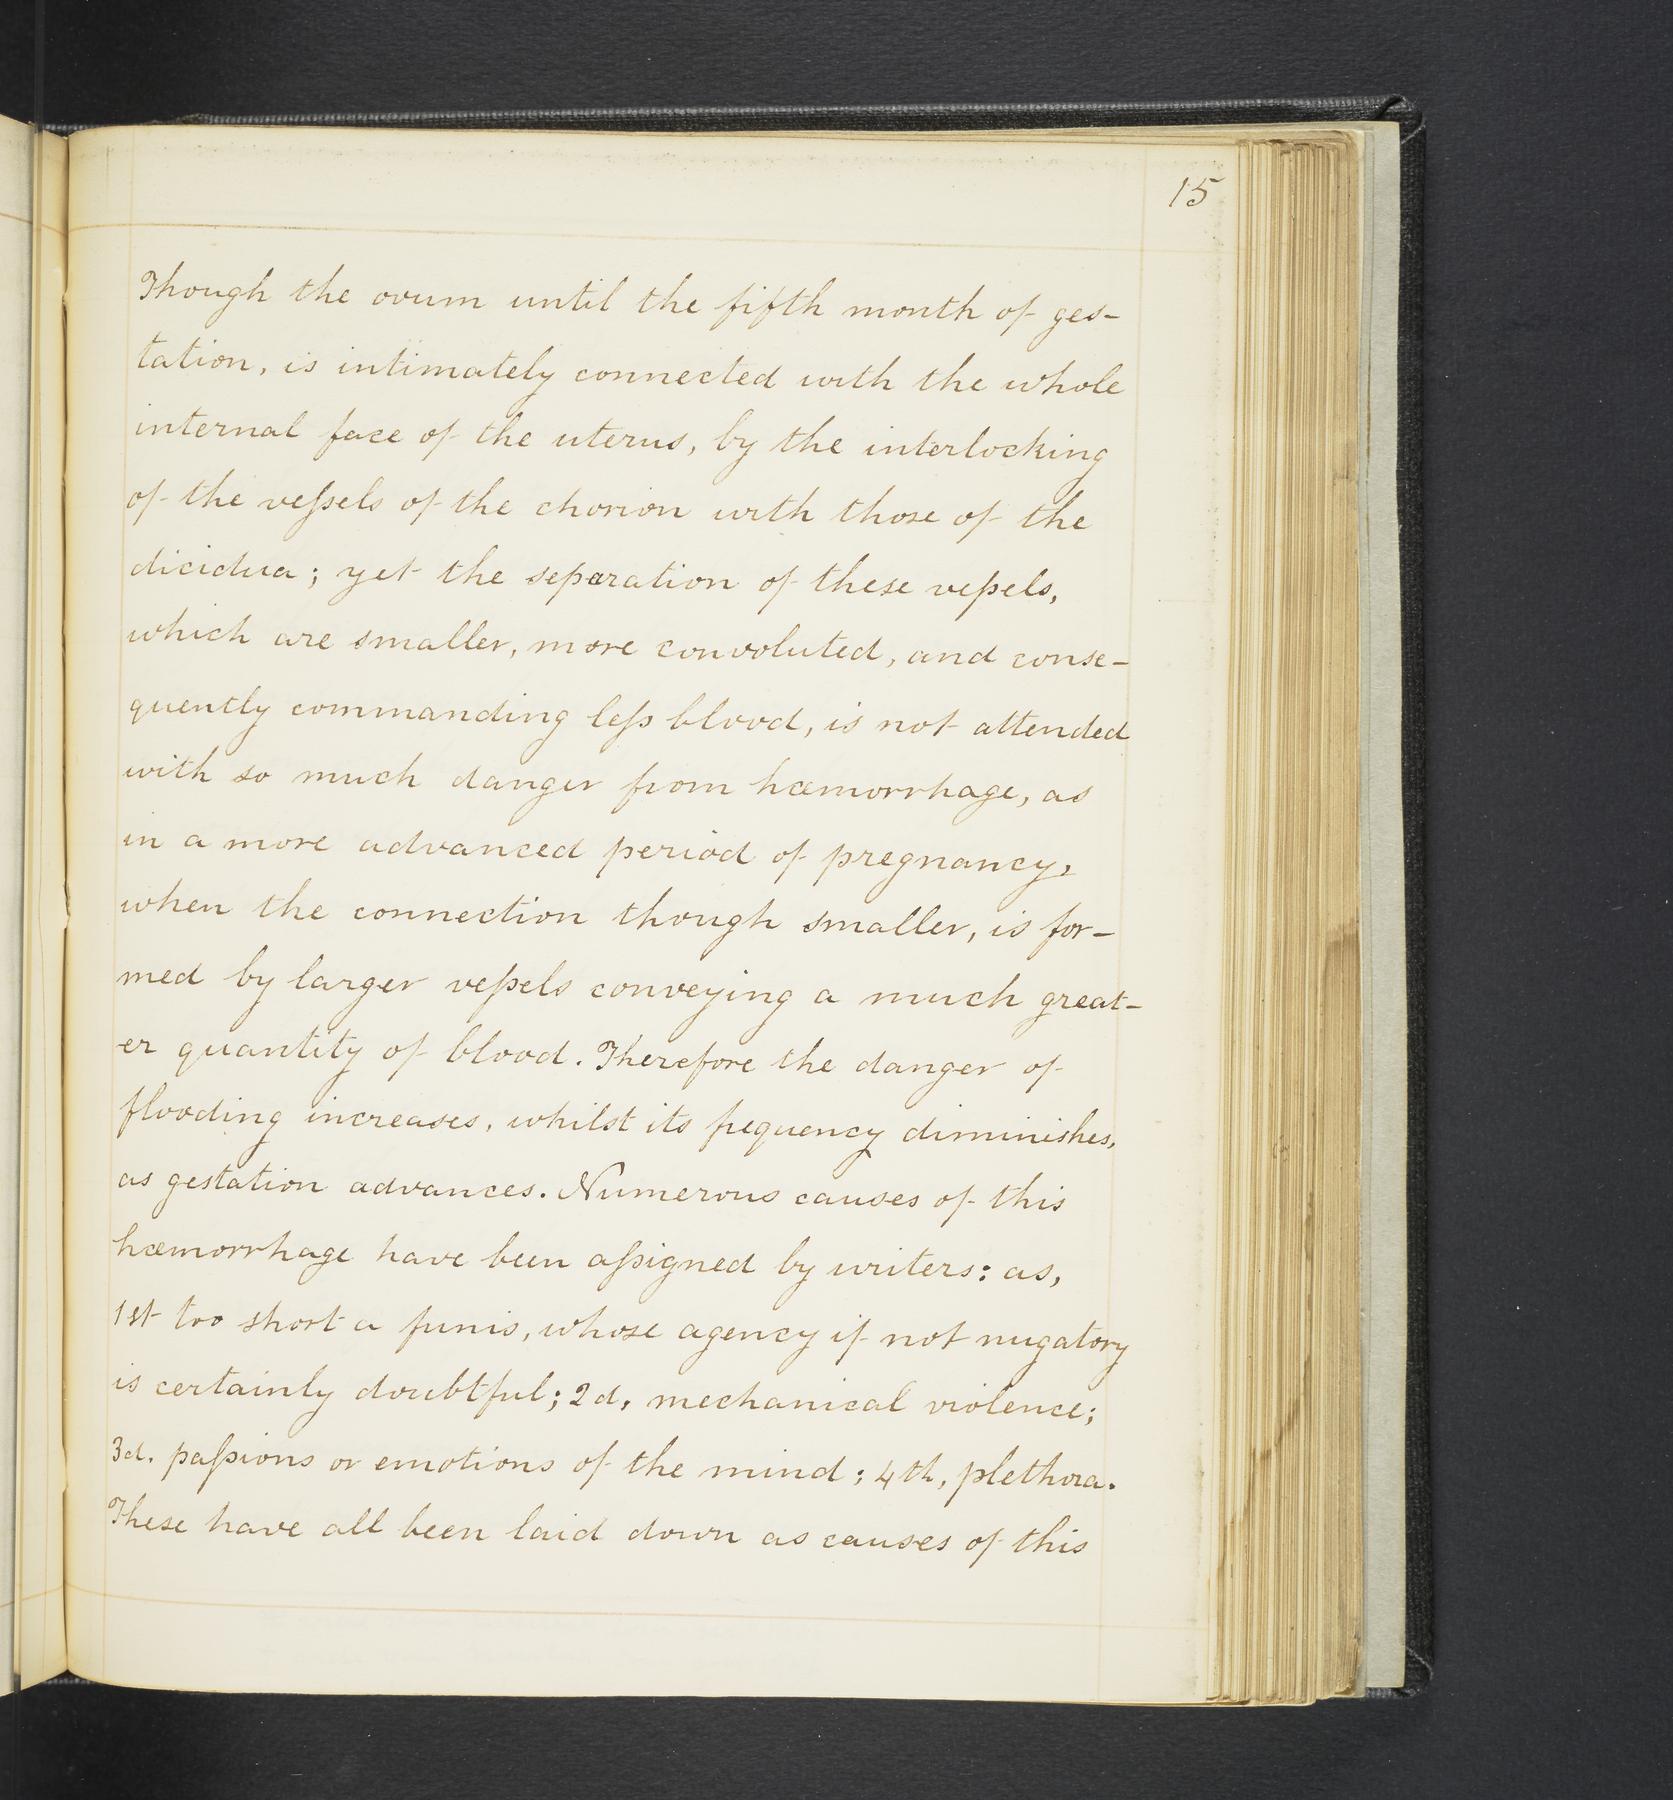 15
Though the ovum until the fifth month of ges-
tation, is intimately connected with the whole
internal face of the uterus, by the interlocking
of the veſsels of the chorion with those of the
dicidua; yet the separation of these veſsels,
which are smaller, more convoluted, and conse-
quently commanding leſs blood, is not attended
with so much danger from hæmorrhage, as
in a more advanced period of pregnancy,
when the connection though smaller, is for-
med by larger veſsels conveying a much great-
er quantity of blood. Therefore the danger of
flooding increases, whilst its frequency diminishes,
as gestation advances. Numerous causes of this
hæmorrhage have been aſsigned by writers: as,
1st too short a funis, whose agency if not nugatory
is certainly doubtful; 2d, mechanical violence;
3d. paſsions or emotions of the mind; 4th, plethora.
These have all been laid down as causes of this